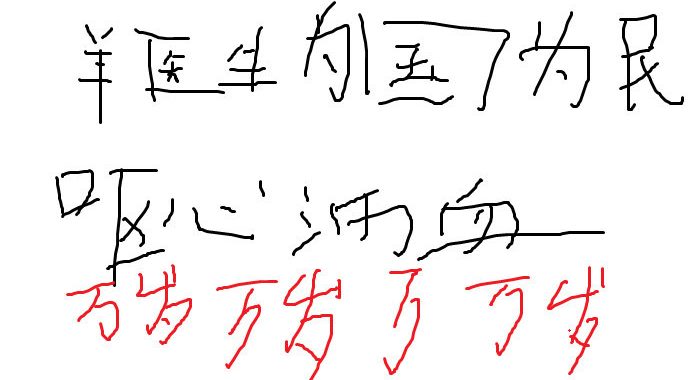 羊医生为国为民
呕心沥血
万岁万岁万万岁